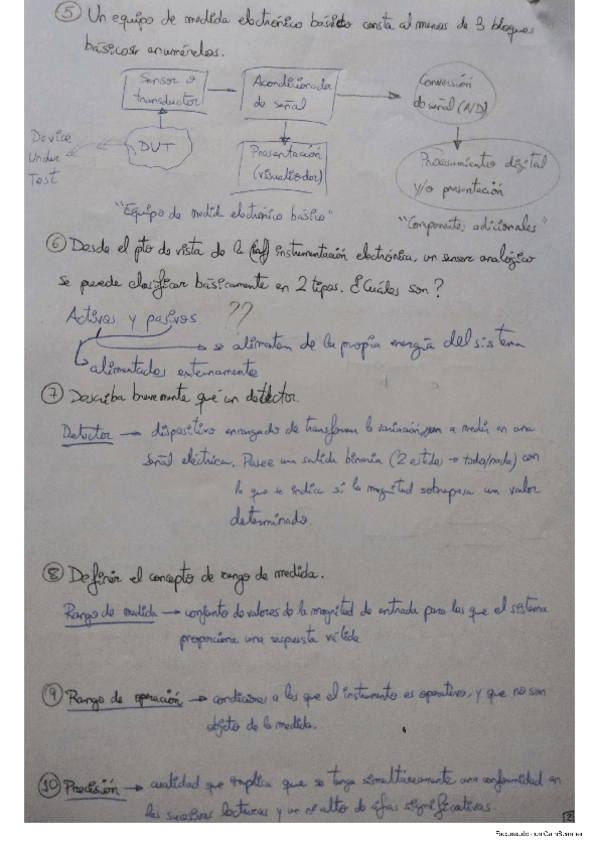 ⑤ Un equipo de medida electrónico básico consta al menos de 3 bloques
básicos enumérelos.
Sensor o
transductor
Acondicionador
de señal
Conversión
de señal (A/D)
Device
Under
Test
DUT
Presentación
(visualizador)
Procesamiento digital
y/o presentación
"Equipo de medida electrónico básico"
"Componentes adicionales"
⑥ Desde el pto de vista de la instrumentación electrónica, un sensor analógico
se puede clasificar básicamente en 2 tipos. ¿Cuáles son?
Activos y pasivos ??
se alimentan de la propia energía del sistema
alimentados externamente
⑦ Describa brevemente qué un detector.
Detector → dispositivo encargado de transformar la variación a medir en una
señal eléctrica. Posee una salida binaria (2 estados → todo/nada) con
lo que se indica si la magnitud sobrepasa un valor
determinado.
⑧ Definir el concepto de rango de medida.
Rango de medida → conjunto de valores de la magnitud de entrada para los que el sistema
proporciona una respuesta válida
⑨ Rango de operación → condiciones a las que el instrumento es operativo, y que no son
objeto de la medida.
⑩ Precisión → cualidad que implica que se tenga simultáneamente una conformidad en
las sucesivas lecturas y un nº alto de cifras significativas.
2